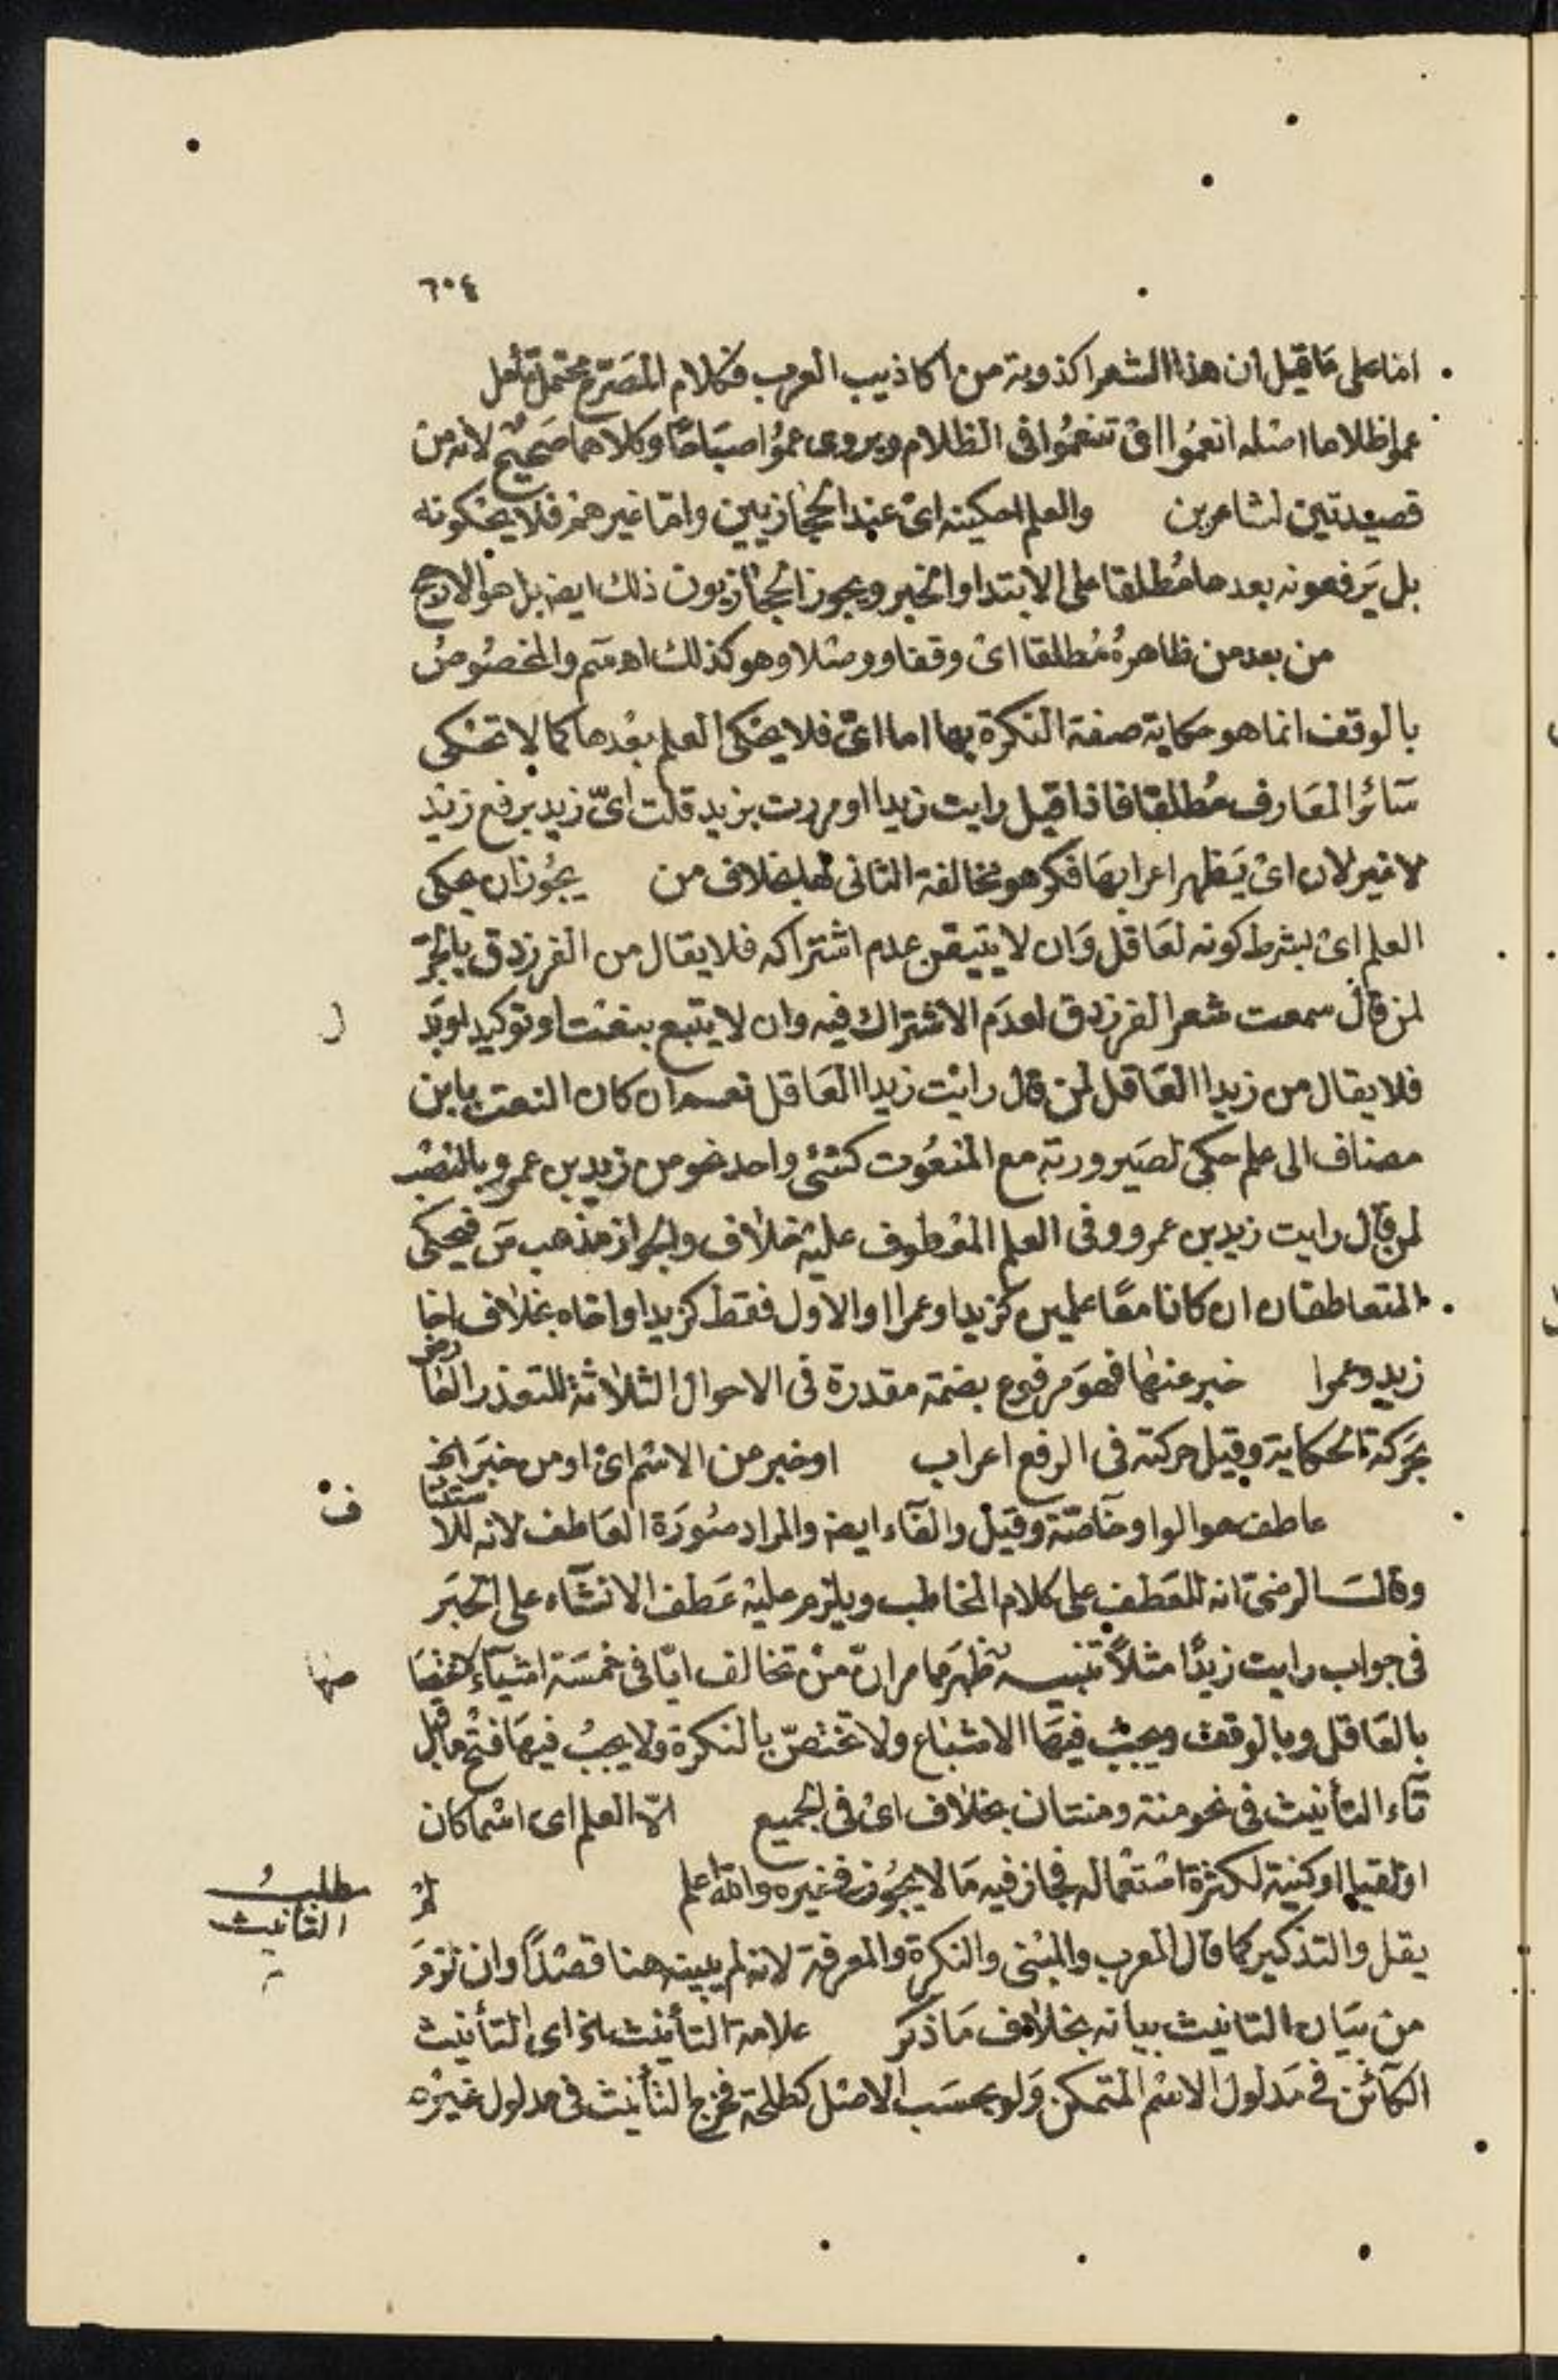 ٦٠٤
اما على ما قيل ان هذا الشعر اكذوبة من اكاذيب العرب فكلام المصرح محتمل تأمل
عموا ظلاما اصله انعموا اى تنعموا فى الظلام ويروى عموا صباحا وكلاهما صحيح لانه من
قصيدتين لشاعرين والعلم احكينه اى عند الحجازيين واما غيرهم فلا يحكونه
بل يرفعونه بعدها مطلقا على الابتدا والخبر ويجوز الحجازيون ذلك ايضا بل هو الارجح
من بعد من ظاهره مطلقا اى وقفا ووصلا وهو كذلك اهـ سم والمخصوص
بالوقف انما هو حكاية صفة النكرة بها اما اى فلا يحكى العلم بعدها كما لا تحكى
سائر المعارف مطلقا فاذا قيل رايت زيدا او مررت بزيد قلت اىّ زيد برفع زيد
لا غير لان اى يظهر اعرابها فكرهو مخالفة الثانى لها بخلاف من يجوز ان يحكى
العلم اى بشرط كونه لعاقل وان لا يتيقن عدم اشتراكه فلا يقال من الفرزدق بالجر
لمن قال سمعت شعر الفرزدق لعدم الاشتراك فيه وان لا يتبع بنعت او توكيد او بد
ل
فلا يقال من زيدا العاقل لمن قال رايت زيدا العاقل نعم ان كان النعت بابن
مضاف الى علم حكى لصيرورته مع المنعوت كشئ واحد نحو من زيد بن عمرو بالنصب
لمن قال رايت زيد بن عمرو وفى العلم المعطوف عليه خلاف والجواز مذهب س فيحكى
المتعاطفان ان كانا معا علمين كزيدا وعمرا او الاول فقط كزيدا واخاه بخلاف اخا
زيد وعمرا خبر عنها فهو مرفوع بضمة مقدرة فى الاحوال الثلاثة للتعذر العا
رض
بحركة الحكاية وقيل حركته فى الرفع اعراب او خبر من الاسم اى او من خبر الخ
عاطف هو الواو خاصة وقيل والفاء ايضا والمراد صورة العاطف لانه للا
ستئنا
ف
وقال الرضى انه للعطف على كلام المخاطب ويلزم عليه عطف الانشاء على الخبر
فى جواب رايت زيدا مثلا تنبيه ظهر مما مر ان من تخالف ايا فى خمسة اشياء اختصا
صها
بالعاقل وبالوقف ويجب فيها الاشباع ولا تختص بالنكرة ولا يجب فيها فتح ما قبل
تاء التأنيث فى نحو منة ومنتان بخلاف اى فى الجميع الا العلم اى اسما كان
او لقبا او كنية لكثرة استعماله فجاز فيه ما لا يجوز فى غيره والله اعلم
لم
مطلب
التانيث
يقل والتذكير كما قال المعرب والمبنى والنكرة والمعرفة لانه لم يبينه هنا قصدا وان لزم
من بيان التانيث بيانه بخلاف ما ذكر علامة التأنيث الخ اى التأنيث
الكائن فى مدلول الاسم المتمكن ولو بحسب الاصل كطلحة فخرج التأنيث فى مدلول غيره